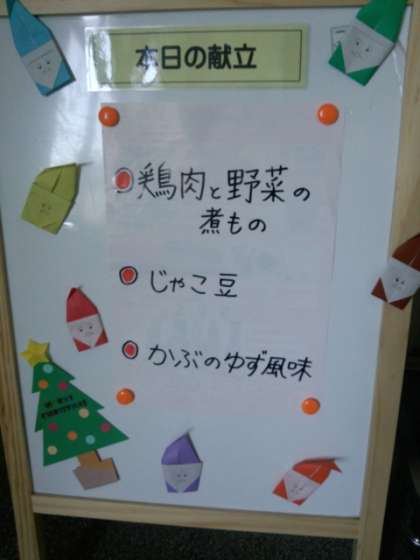 本日の献立
鶏肉と野菜の
煮もの
じゃこ豆
かぶのゆず風味